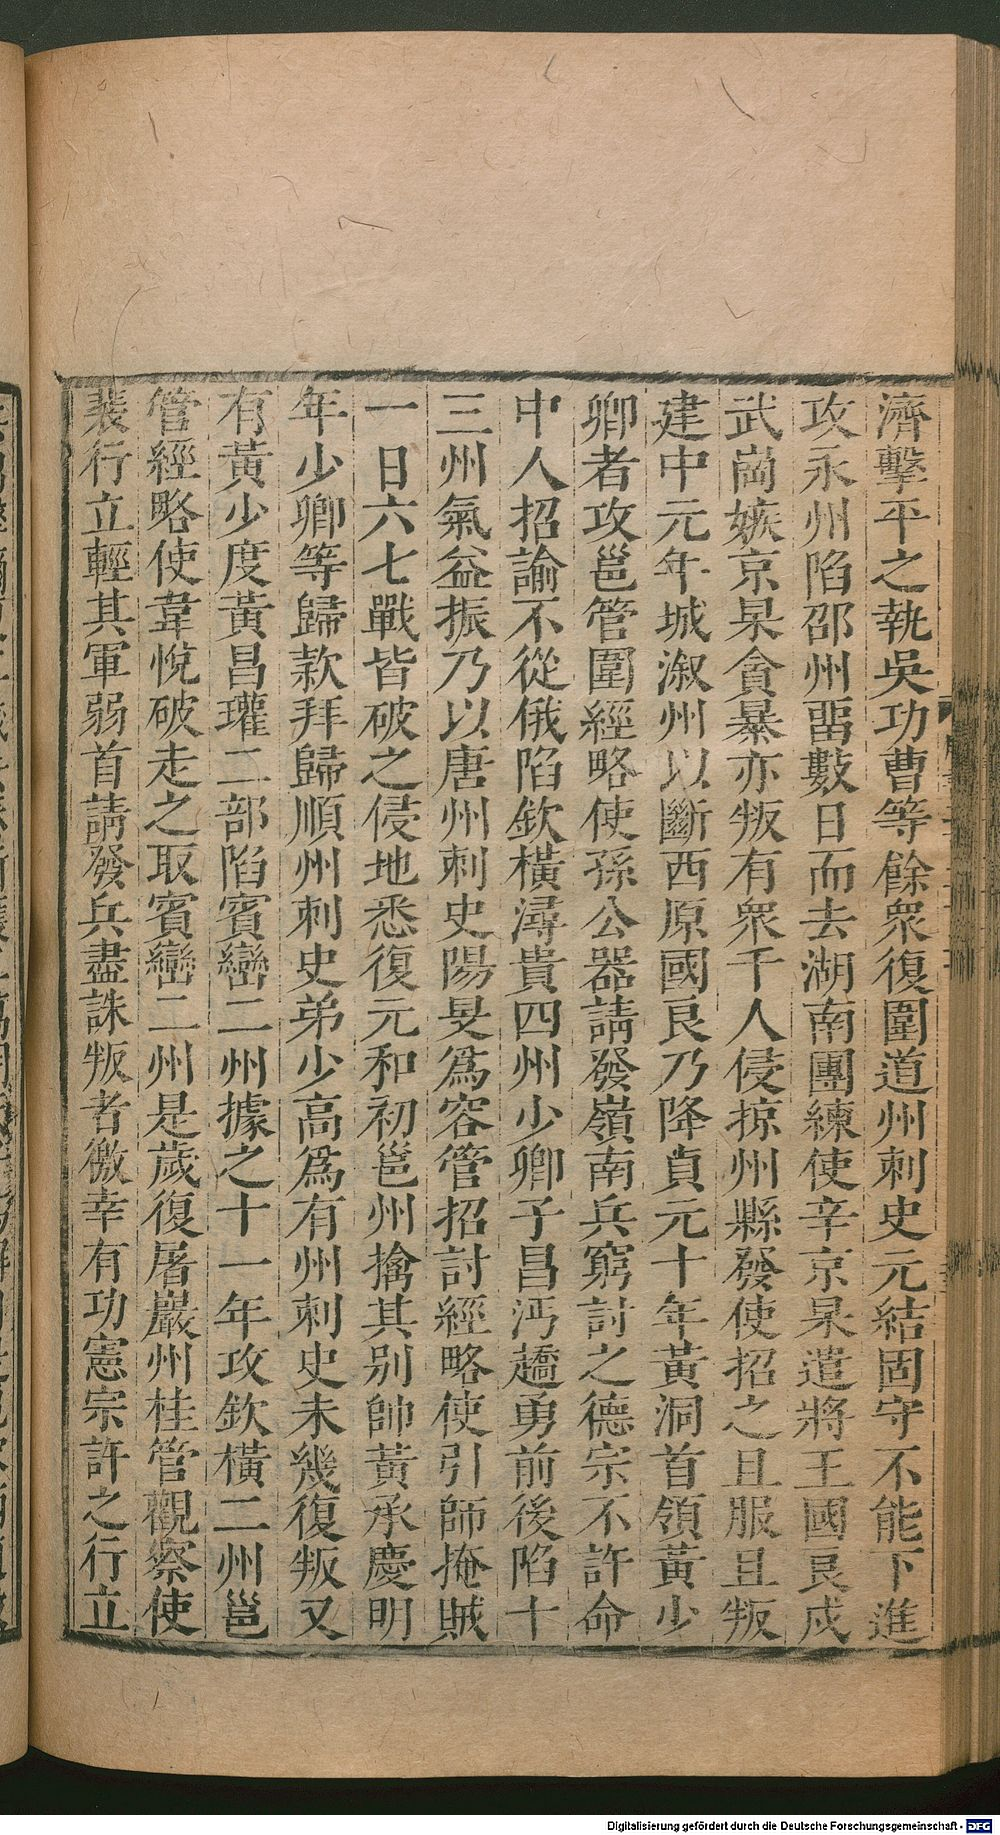 濟擊平之執吳功曹等餘衆復圍道州刺史元結固守不能下進
攻永州陷邵州畱數日而去湖南團練使辛京杲遣將王國良戍
武崗嫉京杲貪暴亦叛有衆千人侵掠州縣發使招之且服且叛
建中元年城溆州以斷西原國良乃降貞元十年黃洞首領黃少
卿者攻邕管圍經略使孫公器請發嶺南兵窮討之德宗不許命
中人招諭不從俄陷欽橫潯貴四州少卿子昌沔趫勇前後陷十
三州氣益振乃以唐州刺史陽旻爲容管招討經略使引師掩賊
一日六七戰皆破之侵地悉復元和初邕州擒其别帥黃承慶明
年少卿等歸款拜歸順州刺史弟少高爲有州刺史未幾復叛又
有黃少度黃昌瓘二部陷賓巒二州據之十一年攻欽橫二州邕
管經略使韋悅破走之取賓巒二州是歲復屠巖州桂管觀察使
裴行立輕其軍弱首請發兵盡誅叛者徼幸有功憲宗許之行立
Digitalisierung gefördert durch die Deutsche Forschungsgemeinschaft - DFG